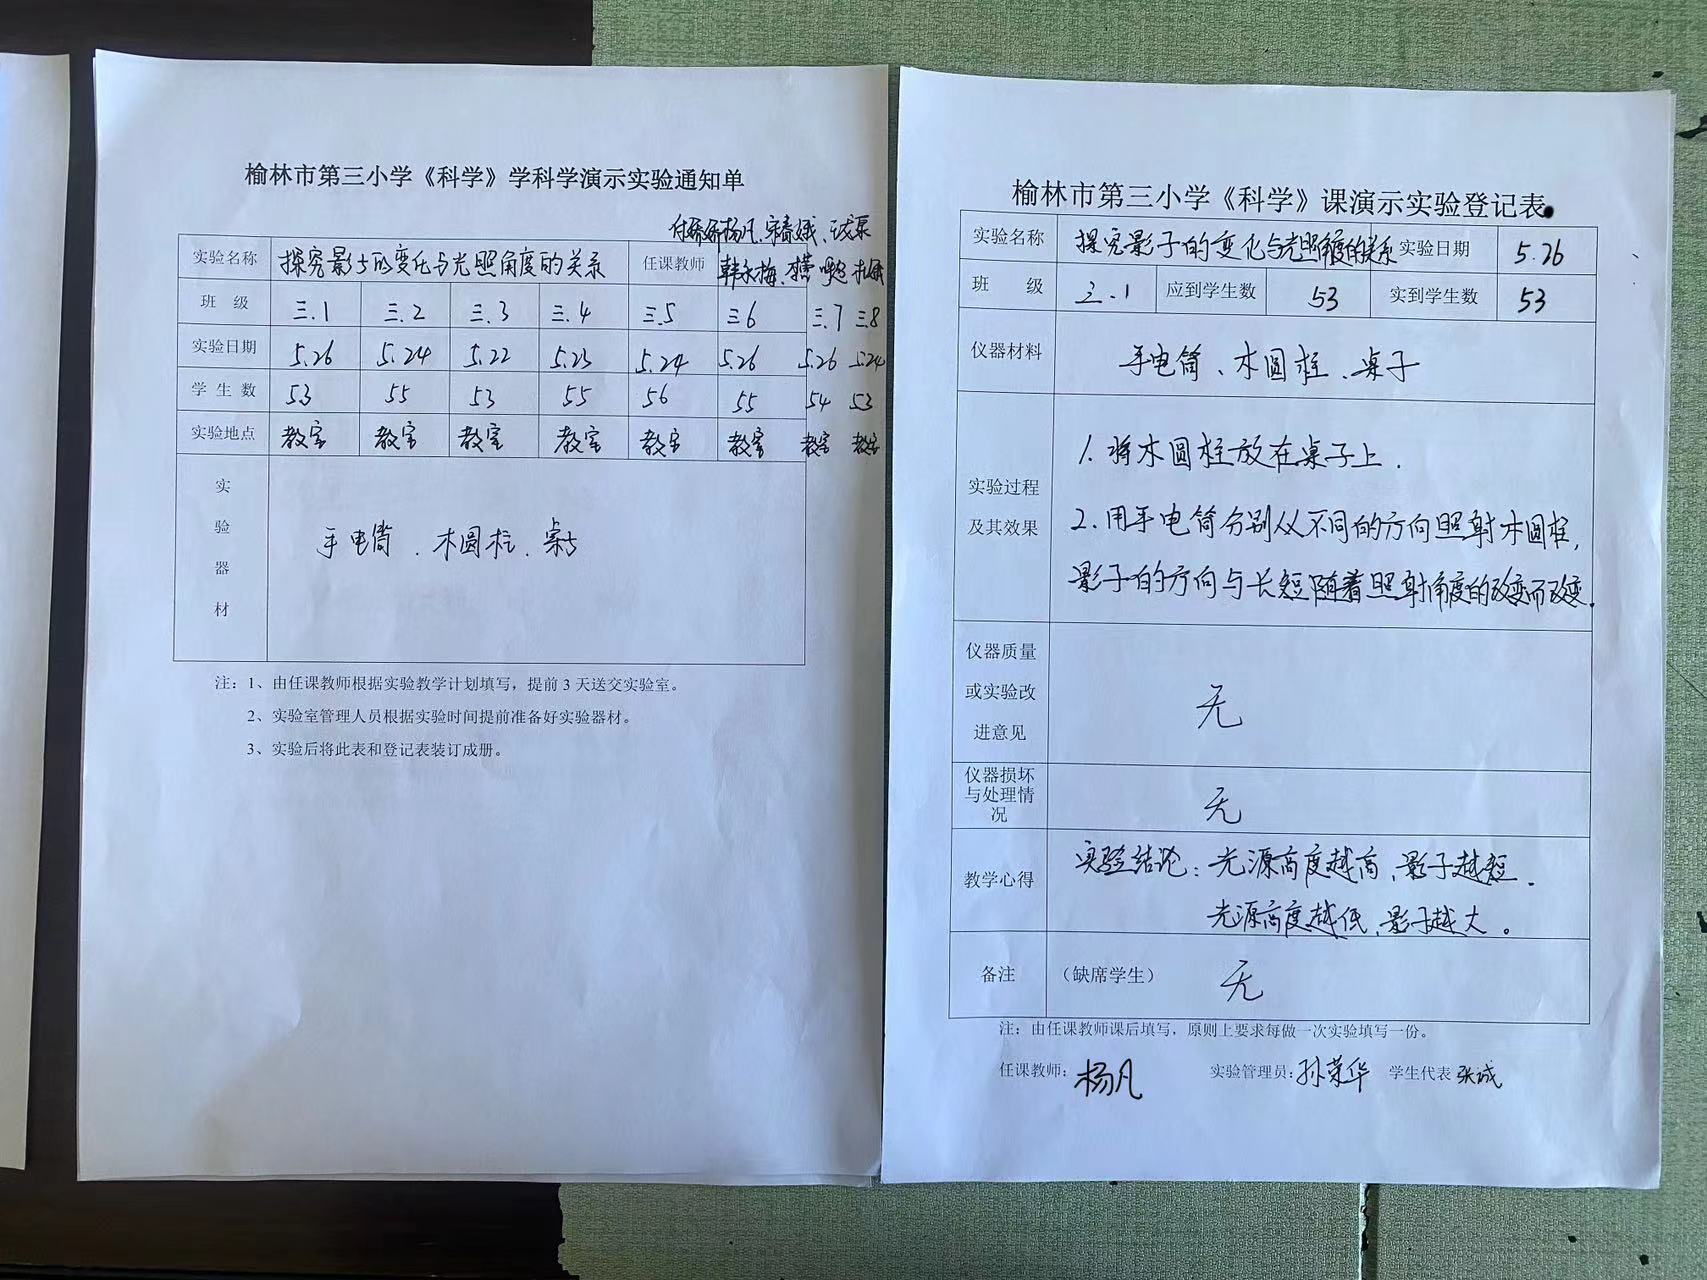 榆林市第三小学《科学》学科学演示实验通知单
杨凡、宋青娥、
实验名称 探究影子的变化与光照角度的关系 任课教师 韩永梅、
班 级 三.1 三.2 三.3 三.4 三.5 三6 三.7 三.8
实验日期 5.26 5.24 5.22 5.23 5.24 5.26 5.26 5.24
学 生 数 53 55 53 55 56 55 54 53
实验地点 教室 教室 教室 教室 教室 教室 教室 教室
实
验
器
材
手电筒、木圆柱、桌子
注：1、由任课教师根据实验教学计划填写，提前 3 天送交实验室。
2、实验室管理人员根据实验时间提前准备好实验器材。
3、实验后将此表和登记表装订成册。
榆林市第三小学《科学》课演示实验登记表
实验名称 探究影子的变化与光照角度的关系 实验日期 5.26
班 级 三.1 应到学生数 53 实到学生数 53
仪器材料 手电筒、木圆柱、桌子
实验过程
及其效果
1.将木圆柱放在桌子上.
2.用手电筒分别从不同的方向照射木圆柱,
影子的方向与长短随着照射角度的改变而改变.
仪器质量
或实验改
进意见
无
仪器损坏
与处理情
况
无
教学心得
实验结论：光源高度越高,影子越短.
光源高度越低,影子越大。
备注 （缺席学生） 无
注：由任课教师课后填写，原则上要求每做一次实验填写一份。
任课教师：杨凡 实验管理员：孙荣华 学生代表 张诚